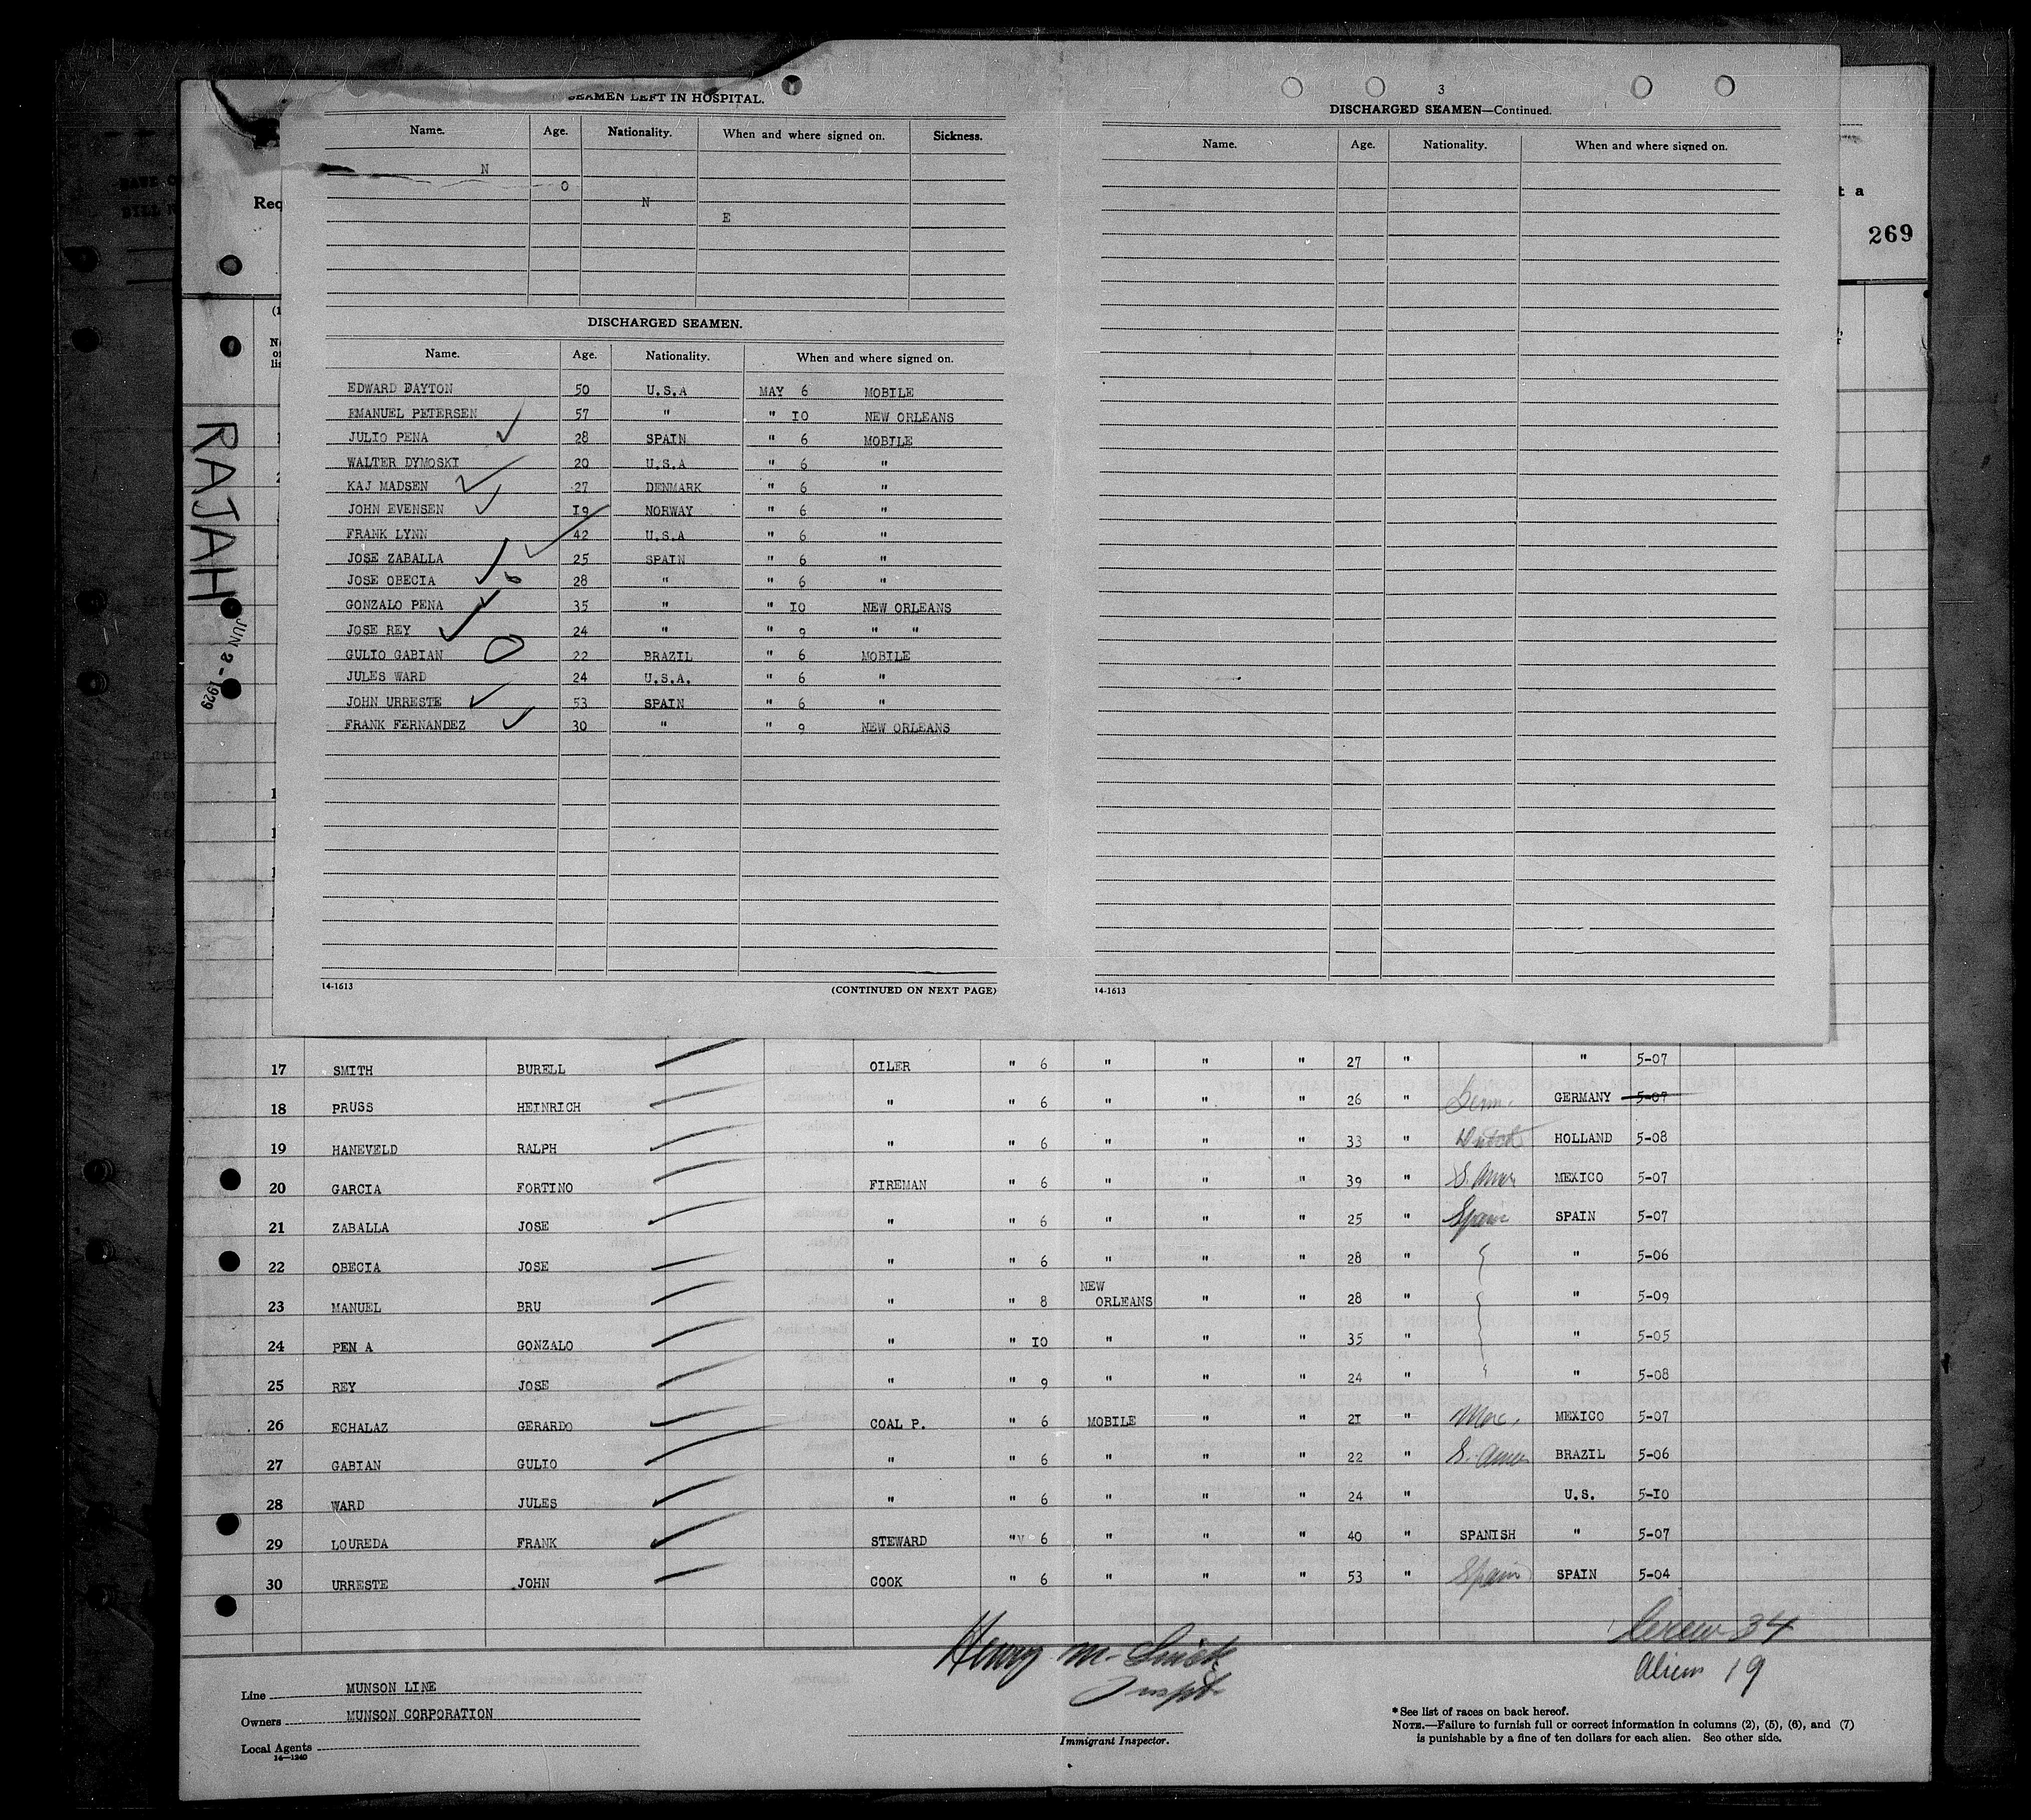 SEAMEN LEFT IN HOSPITAL.
Name. Age. Nationality. When and where signed on. Sickness.
N
O
N
E
DISCHARGED SEAMEN.
Name. Age. Nationality. When and where signed on.
EDWARD DAYTON 50 U.S.A MAY 6 MOBILE
EMANUEL PETERSEN 57 " " 10 NEW ORLEANS
JULIO PENA 28 SPAIN " 6 MOBILE
WALTER DYMOSKI 20 U.S.A " 6 "
KAJ MADSEN 27 DENMARK " 6 "
JOHN EVENSEN 19 NORWAY " 6 "
FRANK LYNN 42 U.S.A " 6 "
JOSE ZABALLA 25 SPAIN " 6 "
JOSE OBECIA 28 " " 6 "
GONZALO PENA 35 " " 10 NEW ORLEANS
JOSE REY 24 " " 9 " "
GULIO GABIAN 22 BRAZIL " 6 MOBILE
JULES WARD 24 U.S.A. " 6 "
JOHN URRESTE 53 SPAIN " 6 "
FRANK FERNANDEZ 30 " " 9 NEW ORLEANS
14-1613 (CONTINUED ON NEXT PAGE)
3
DISCHARGED SEAMEN—Continued.
Name. Age. Nationality. When and where signed on.
14-1613
Req
t a
269
RAJAH
JUN 2-1929
17 SMITH BURELL OILER " 6 " " " 27 " " 5-07
18 PRUSS HEINRICH " " 6 " " " 26 " Germ. GERMANY 5-07
19 HANEVELD RALPH " " 6 " " " 33 " Dutch HOLLAND 5-08
20 GARCIA FORTINO FIREMAN " 6 " " " 39 " S. Amer MEXICO 5-07
21 ZABALLA JOSE " " 6 " " " 25 " Span SPAIN 5-07
22 OBECIA JOSE " " 6 " " " 28 " " 5-06
23 MANUEL BRU " " 8 NEW ORLEANS " " 28 " " 5-09
24 PEN A GONZALO " " 10 " " " 35 " " 5-05
25 REY JOSE " " 9 " " " 24 " " 5-08
26 ECHALAZ GERARDO COAL P. " 6 MOBILE " " 21 " Mex. MEXICO 5-07
27 GABIAN GULIO " " 6 " " " 22 " S. Amer BRAZIL 5-06
28 WARD JULES " " 6 " " " 24 " U.S. 5-10
29 LOUREDA FRANK STEWARD " 6 " " " 40 " SPANISH " 5-07
30 URRESTE JOHN COOK " 6 " " " 53 " Spain SPAIN 5-04
Crew 34
Aliens 19
Henry M.
Inspt.
Immigrant Inspector.
Line MUNSON LINE
Owners MUNSON CORPORATION
Local Agents
14—1240
* See list of races on back hereof.
NOTE.—Failure to furnish full or correct information in columns (2), (5), (6), and (7)
is punishable by a fine of ten dollars for each alien. See other side.